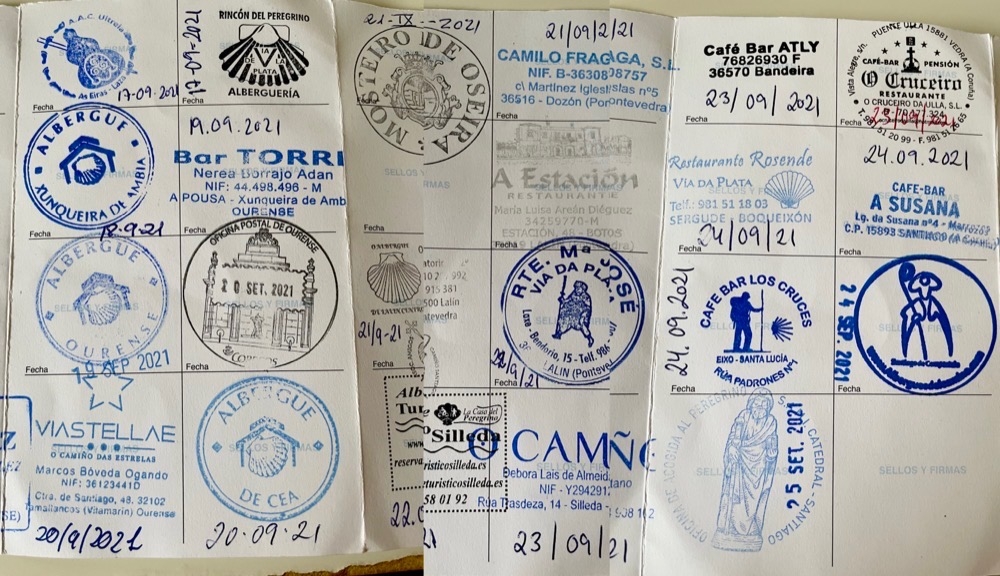 A.A.C. Ultreia
As Eiras - Laza
Fecha
17-09-2021
17-09-2021
RINCÓN DEL PEREGRINO
VIA
DE LA
PLATA
ALBERGUERÍA
Fecha
ALBERGUE
XUNQUEIRA DE AMBIA
18-9-21
19.09.2021
Bar TORRE
Nerea Borrajo Adan
NIF: 44.498.496 - M
A POUSA - Xunqueira de Amb
OURENSE
ALBERGUE
SELLOS Y FIRMAS
OURENSE
Fecha
19 SEP 2021
OFICINA POSTAL DE OURENSE
20 SET. 2021
SELLOS Y FIRMAS
Correos
Fecha
VIASTELLAE
O CAMIÑO DAS ESTRELAS
Marcos Bóveda Ogando
NIF: 36123441D
Ctra. de Santiago, 48. 32102
Tamallancos (Vilamarín) Ourense
20/9/2021
ALBERGUE
SELLOS Y FIRMAS
DE CEA
20.09.21
21-IX--2021
MOSTEIRO DE OSEIRA
Fecha
SELLOS
FIRMAS
21/09/2/21
CAMILO FRAGAGA, S.L.
NIF. B-36308
8757
c\ Martínez Igles
islas nº5
36516 - Dozón (Pontevedra)
Fecha
A Estación
RESTAURANTE
María Luisa Areán Diéguez
34259770-M
ESTACIÓN, 48 - BOTOS
O ALBERGUE
DE LALIN CENTRO
915 381
500 Lalín
tevedra
21/9-21
RTE. Mª JOSÉ
VIA DA PLATA
Laxe - Bendoiro, 15 - Telf. 986
LALIN (Ponteve
22/9/21
Alb
Tur
www
reserva
La Casa del
Peregrino
Silleda
turisticosilleda.es
turisticosilleda.es
58 01 92
22.0
O CAMÑO
SELLOS Y FIRMAS
Debora Lais de Almeid
tano
NIF - Y2942912
Rúa Trasdeza, 14 - Silleda
23/09/21
Café Bar ATLY
76826930 F
36570 Bandeira
23/09/2021
Fecha
PUENTE ULLA 15881 VEDRA (A Coruña)
Vista Alegre, s/n.
CAFÉ-BAR
PENSIÓN
O Cruceiro
RESTAURANTE
O CRUCEIRO DA ULLA, S.L.
23/09/2021
981 51 20 99 - F. 981
Fecha
Restaurante Rosende
VIA DA PLATA
Telf.: 981 51 18 03
SERGUDE - BOQUEIXÓN
24/09/21
24.09.2021
CAFE-BAR
A SUSANA
Lg. da Susana nº4 - Marrozos
C.P. 15893 SANTIAGO (A Coruña)
24.09.2021
CAFE BAR LOS CRUCES
EIXO - SANTA LUCÍA
RÚA PADRONES Nº1
24 SEP. 2021
SELLOS Y FIRMAS
Fecha
OFICINA DE ACOGIDA AL PEREGRINO
S. CATEDRAL - SANTIAGO
SELLOS Y FIRMAS
25 SET. 2021
SELLOS Y FIRMAS